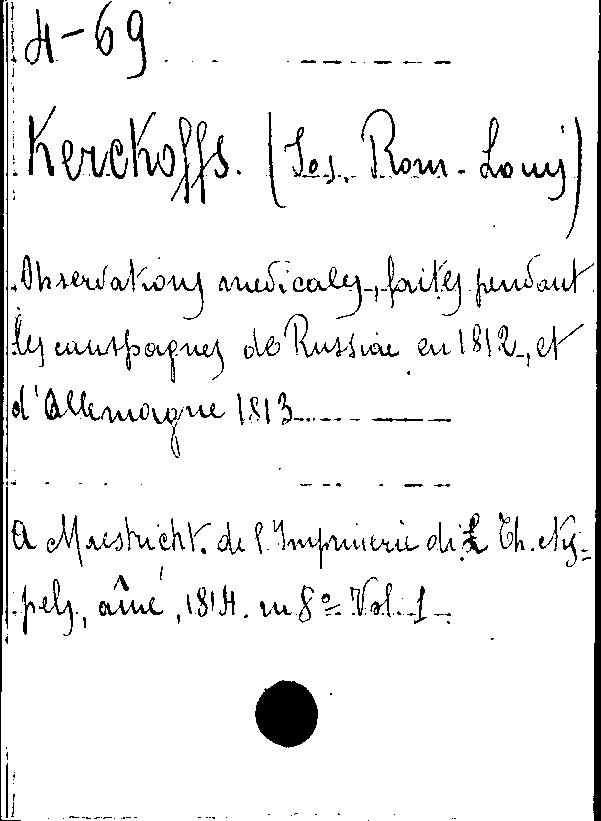 4-69
Kerckoffs. (Jos. Rom-Louis)
Observations medicales, faites pendant
les campagnes de Russiae en 1812, et
d'Allemagne 1813
A Maestricht. de l'Imprimerie de L Th. Nys=
pels, aîné, 1814. in 8º Vol. 1